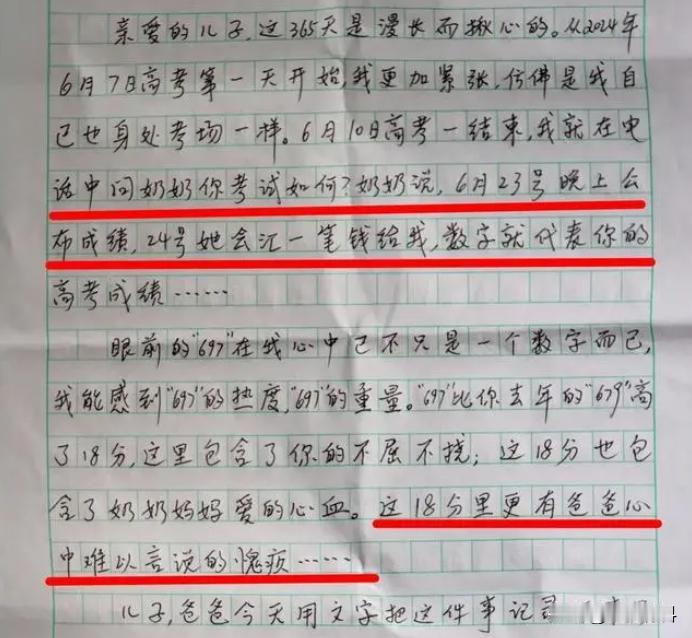 亲爱的儿子,这365天是漫长而揪心的。从2024年
6月7日高考第一天开始,我更加紧张,仿佛是我自
己也身处考场一样。6月10日高考一结束,我就在电
话中问奶奶你考试如何?奶奶说,6月23号晚上公
布成绩,24号她会汇一笔钱给我,数字就代表你的
高考成绩……
眼前的"697"在我心中已不只是一个数字而已,
我能感到"697"的热度,"697"的重量。"697"比你去年的"679"高
了18分,这里包含了你的不屈不挠;这18分也包
含了奶奶妈妈爱的心血。这18分里更有爸爸心
中难以言说的愧疚……
儿子,爸爸今天用文字把这件事记录